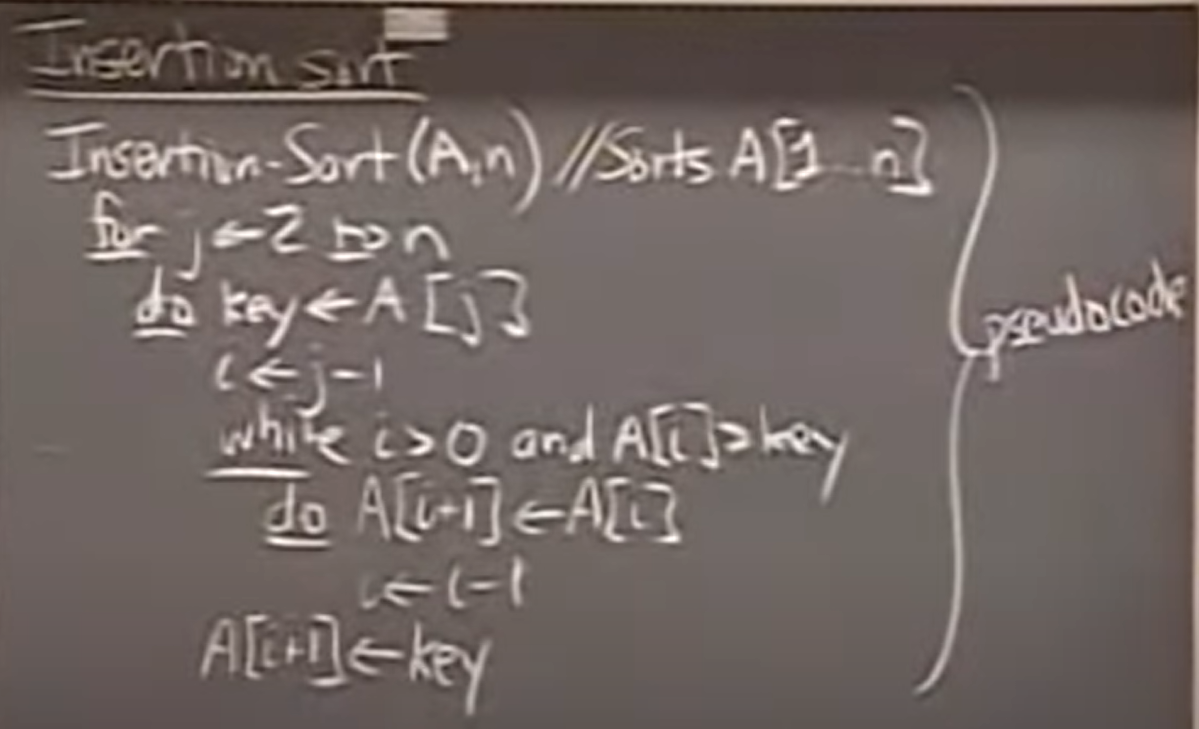 Insertion sort
Insertion-Sort(A,n) //Sorts A[1...n]
for j ← 2 to n
do key ← A[j]
i ← j-1
while i>0 and A[i]>key
do A[i+1] ← A[i]
i ← i-1
A[i+1] ← key
pseudocode